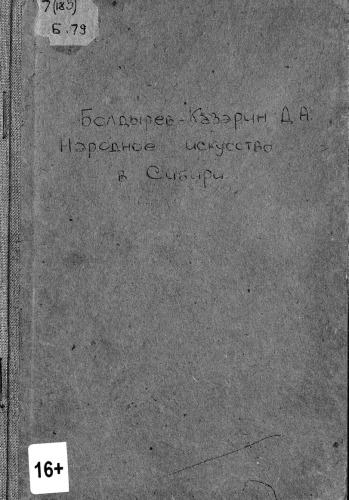 7(18S)
Б.79
Болдырев-Казарин Д.А.
Народное искусство
в Сибири
16+